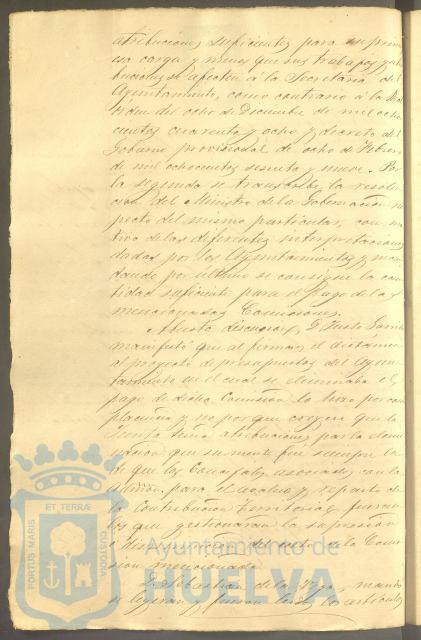 atribuciones suficientes para suprimir
esa carga y menos que sus trabajos y atri
buciones se afecten á la Secretaría del
Ayuntamiento, como contrario á la Real
orden del ocho de Diciembre de mil ocho
cientos cuarenta y ocho y decreto del
Gobierno provisional de ocho de Febrero
de mil ochocientos sesenta y nueve. Por
la segunda se transcribe la resolu
cion del Ministro de la Gobernacion res
pecto del mismo particular, con mo
tivo de las diferentes interpretaciones
dadas por los Ayuntamientos y man
dando por ultimo se consigne la can
tidad suficiente para el pago de las
mencionadas Comisiones.
Abierta discusion, D. Justo
manifestó que al firmar el dictamen
al proyecto de presupuestos del Ayun
tamiento en el cual se eliminaba el
pago de dicha Comision lo hizo por com
placencia y no por que creyera que la
Junta tenia atribuciones para
que su mente fue siempre la
de que los Concejales asociados con la
Junta para el avaluo y reparto de
la Contribucion territorial fueran
los que gestionaran la supresion
ó disminucion del costo de la Comi
sion mencionada.
D. Sebastian de la Vega,
se leyeran y fueron leidos los articulos
PORTUS MARIS
ET TERRÆ
CUSTODIA
Ayuntamiento de
HUELVA